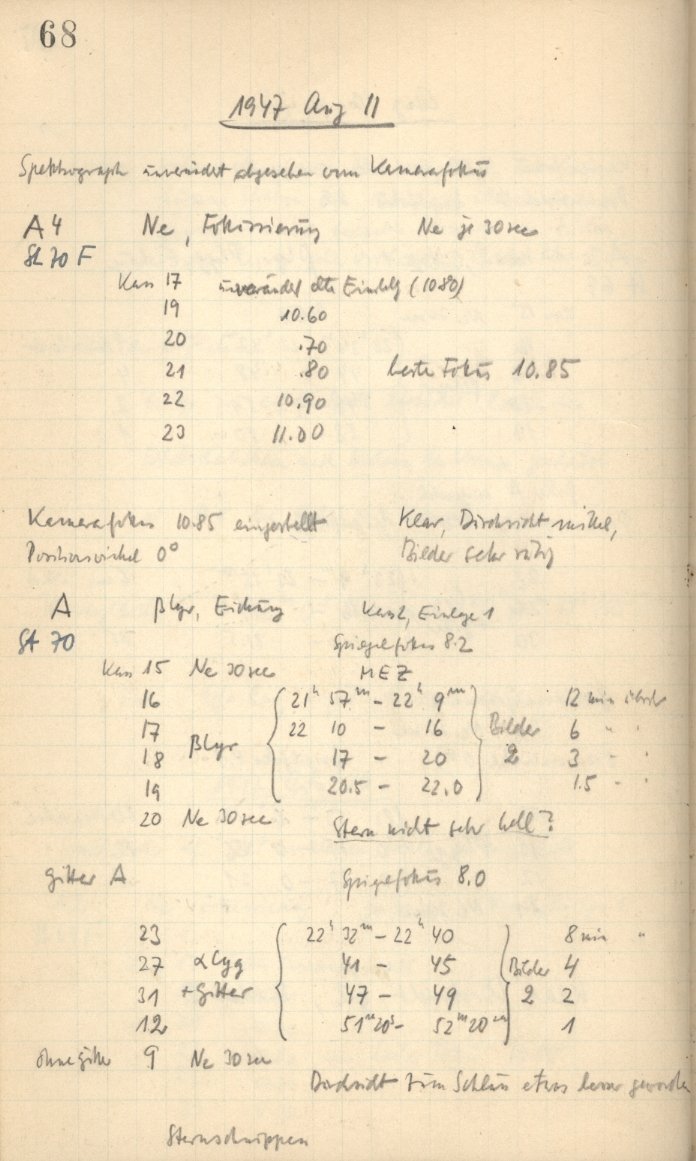 68
1947 Aug 11
Spektrograph unverändert abgesehen vom Kamerafokus
A 4 Ne, Fokussierung Ne je 30 sec
St 70 F
Kass 17 unverändert alte Einstellg (10.80)
19 10.60
20 .70
21 .80 beste Fokus 10.85
22 10.90
23 11.00
Kamerafokus 10.85 eingestellt Klar, Durchsicht mittel,
Positionswinkel 0° Bilder sehr ruhig
A β Lyr, Eichung Kass 2, Einlage 1
St 70 Spiegelfokus 8.2
Kass 15 Ne 30 sec MEZ
16 21h 57m – 22h 9m 12 min
17 22 10 – 16 Bilder 6 "
18 β Lyr 17 – 20 2 3 "
19 20.5 – 22.0 1.5 "
20 Ne 30 sec Stern nicht sehr hell?
Gitter A Spiegelfokus 8.0
23 22h 32m – 22h 40 8 min "
27 α Cyg 41 – 45 Bilder 4
31 + Gitter 47 – 49 2 2
12 51m 20s – 52m 20 1
ohne Gitter 9 Ne 30 sec
Durchsicht zum Schluss etwas besser geworden
Sternschnuppen